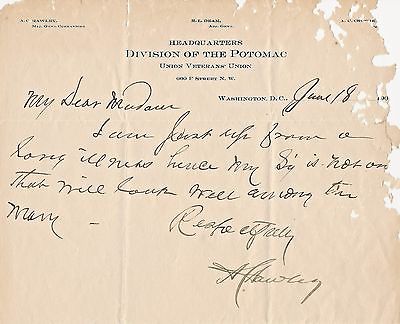 A. C. HAWLEY,
MAJ. GENL. COMMANDING
M. E. URAM,
ADJ. GENL.
HEADQUARTERS
DIVISION OF THE POTOMAC
UNION VETERANS' UNION
WASHINGTON, D.C., June 18 190
My Dear Madam
I am just up from a
long illness hence my Sig is not one
that will look well among the
many —
Respectfully
A C Hawley